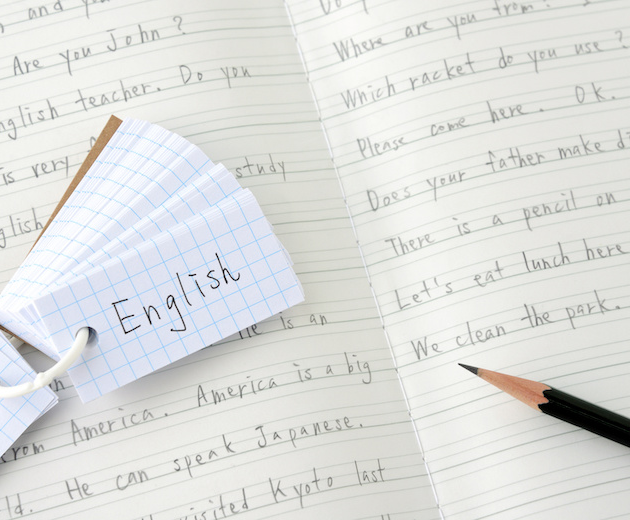 and
Are you John ?
English teacher. Do you
is very
study
English
He is an
America is a big
from America.
He can speak Japanese.
visited Kyoto last
English
Where are you from ?
Which racket do you use ?
Please come here. OK.
Does your father make
There is a pencil on
Let's eat lunch here
We clean the park.